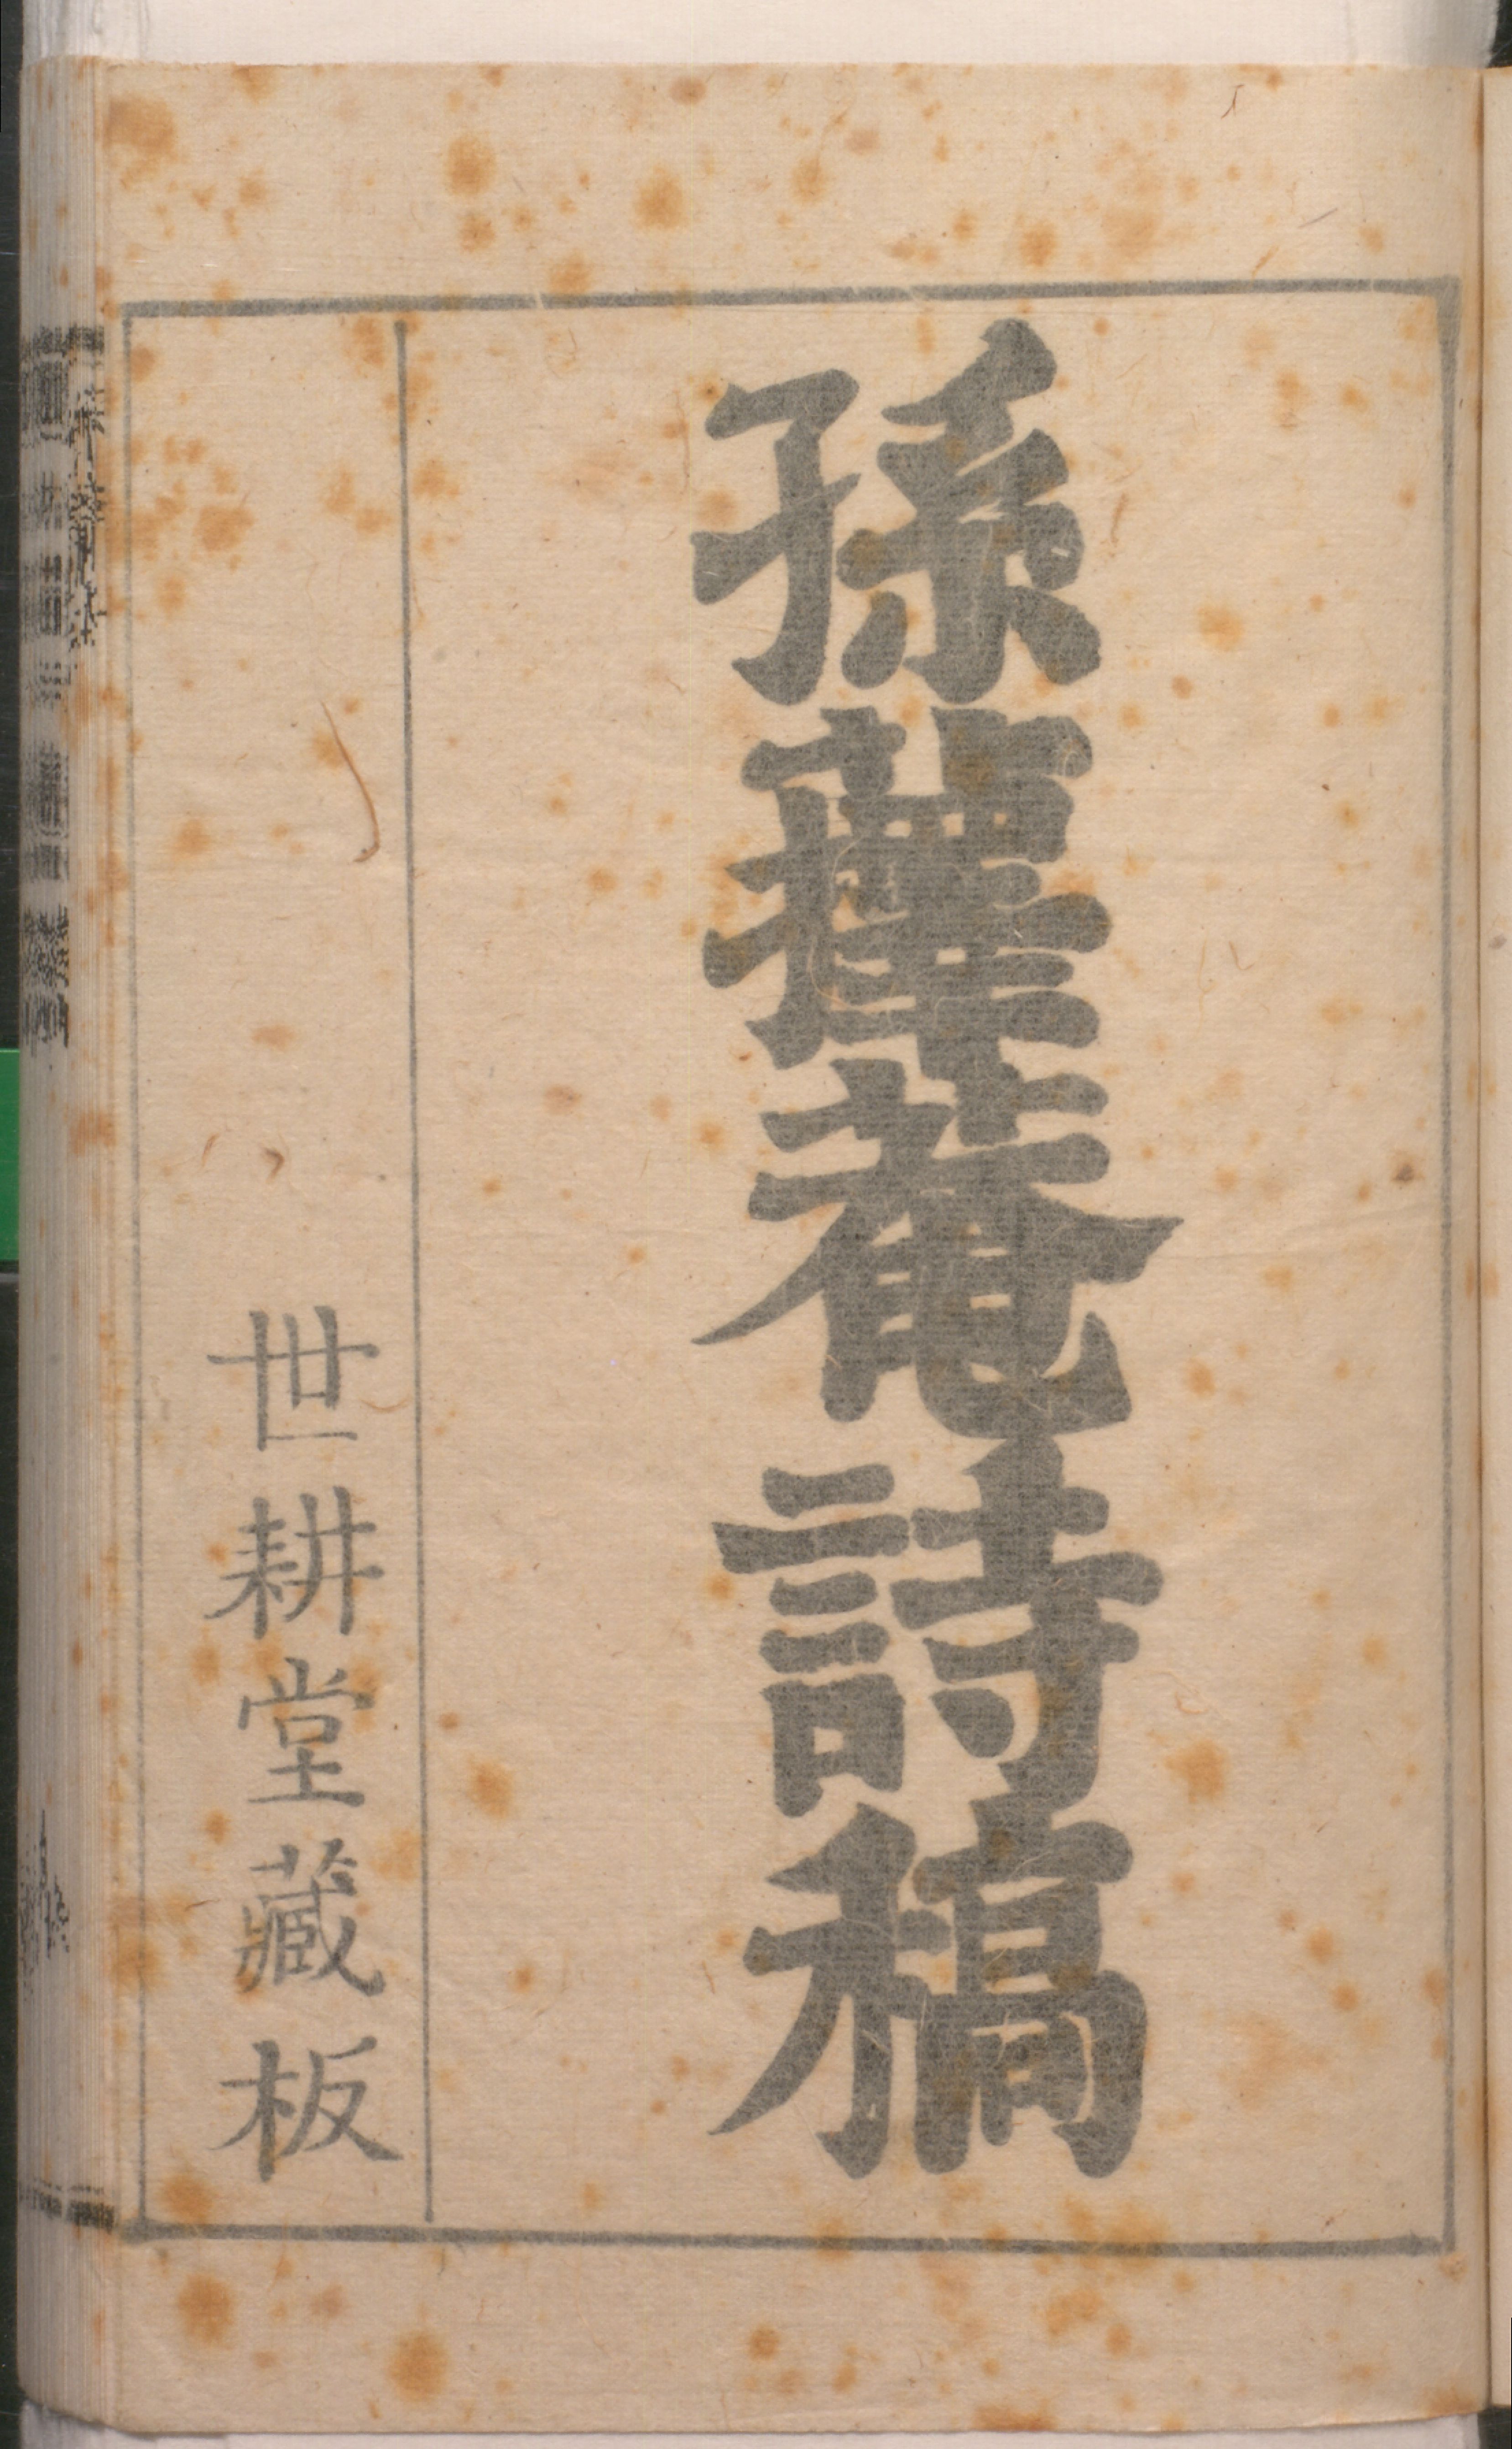 孫蘀菴詩稿
世耕堂藏板